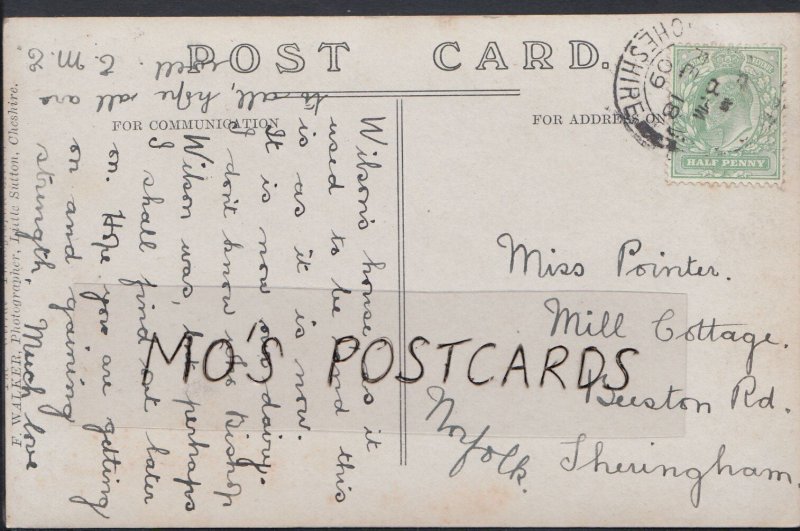 POST CARD.
FOR COMMUNICATION
FOR ADDRESS ON
Wilson's house as it
used to be and this
is as it is now.
It is now our dairy.
I don't know who Bishop
Wilson was, but perhaps
I shall find out later
on. Hope you are getting
on and gaining
strength, Much love
to all, hope all are
well.
E. M. E
F. WALKER, Photographer, Little Sutton, Cheshire.
CHESHIRE
HALF PENNY
Miss Pointer.
Mill Cottage.
Beeston Rd.
Sheringham.
Norfolk.
MO'S POSTCARDS